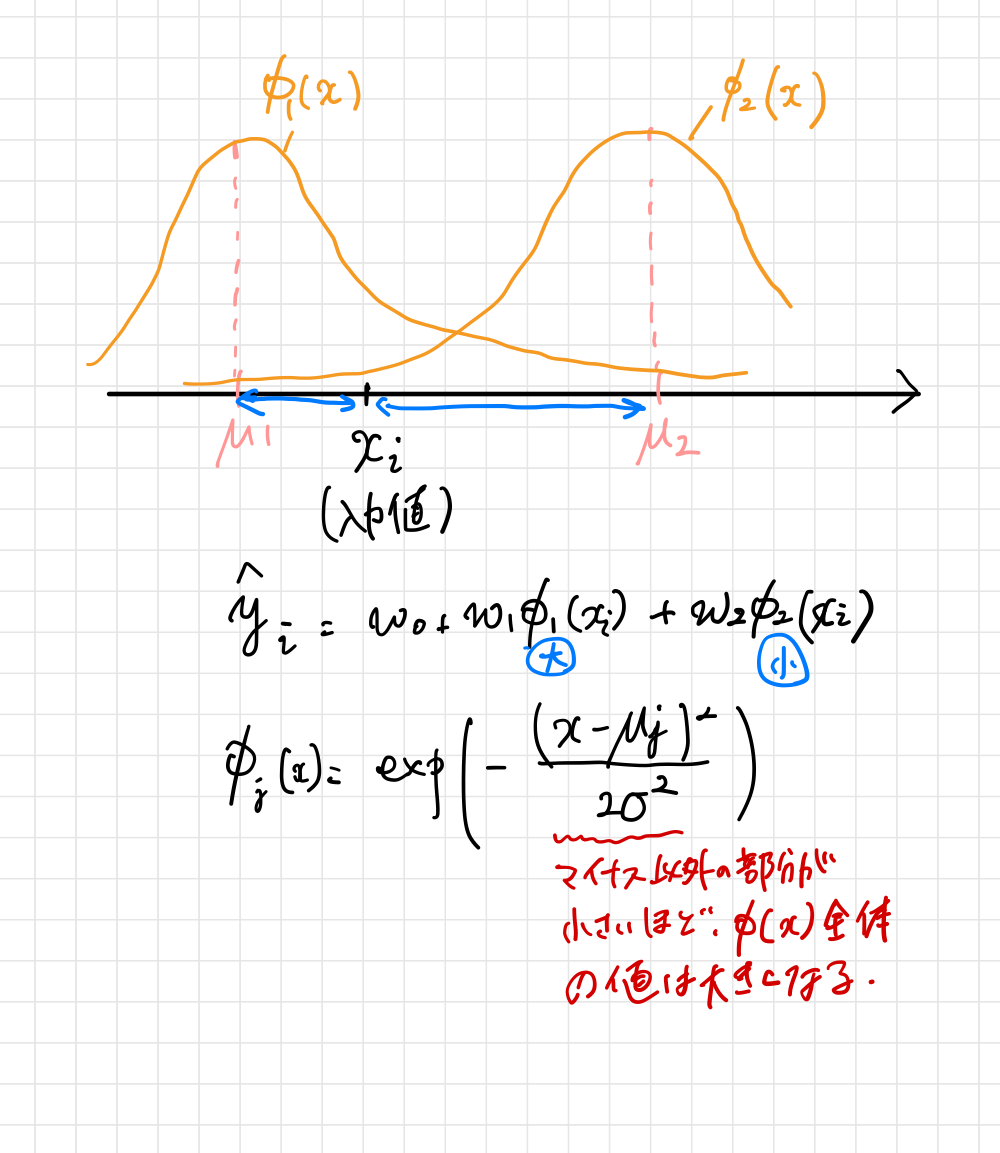 ϕ₁(x)
ϕ₂(x)
μ1
μ₂
xᵢ
(入力値)
ŷᵢ = w₀ + w₁ϕ₁(xᵢ) + w₂ϕ₂(xᵢ)
大
小
ϕⱼ(x) = exp(-(x-μⱼ)²/2σ²)
マイナス以外の部分が
小さいほど、ϕ(x)全体
の値は大きくなる.